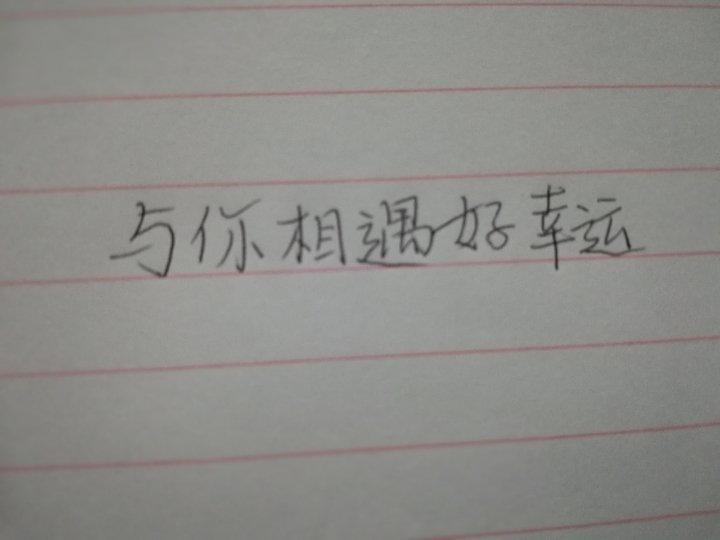 与你相遇好幸运